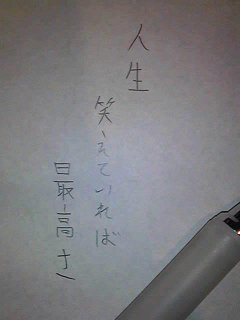 人生
笑えていれば
最高さ